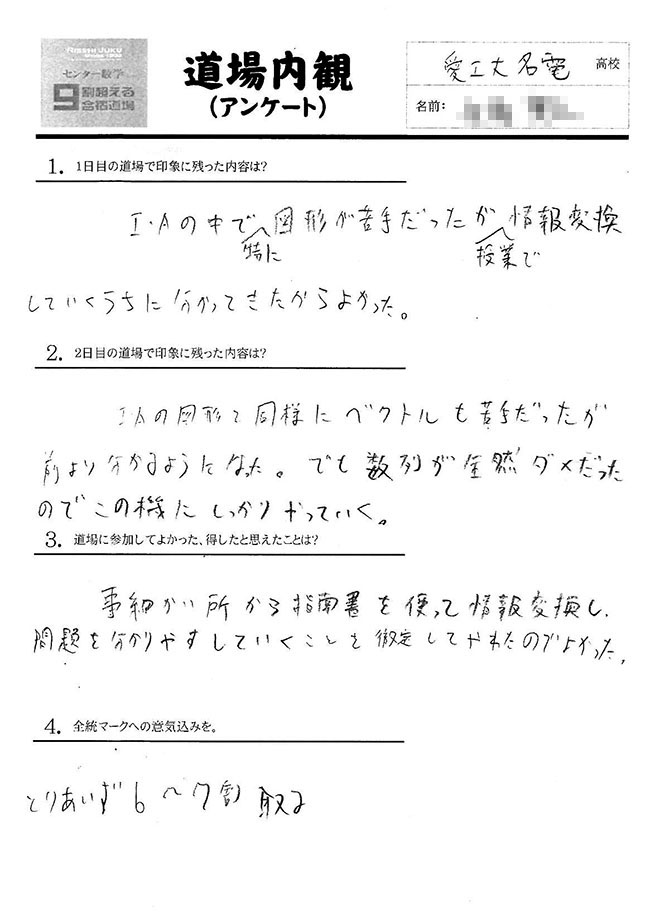 RISSHI JUKU
センター数学
9割超える
合宿道場
道場内観
(アンケート)
愛工大名電 高校
名前:
1. 1日目の道場で印象に残った内容は?
I・Aの中で特に図形が苦手だったが授業で情報変換
していくうちに分かってきたからよかった。
2. 2日目の道場で印象に残った内容は?
I・Aの図形と同様にベクトルも苦手だったが
前より分かるようになった。でも数列が全然ダメだった
のでこの機にしっかりやっていく。
3. 道場に参加してよかった、得したと思えたことは?
事細かい所から指南書を使って情報変換し、
問題を分かりやすしていくことを徹定してやれたのでよかった。
4. 全統マークへの意気込みを。
とりあいず6〜7割取る